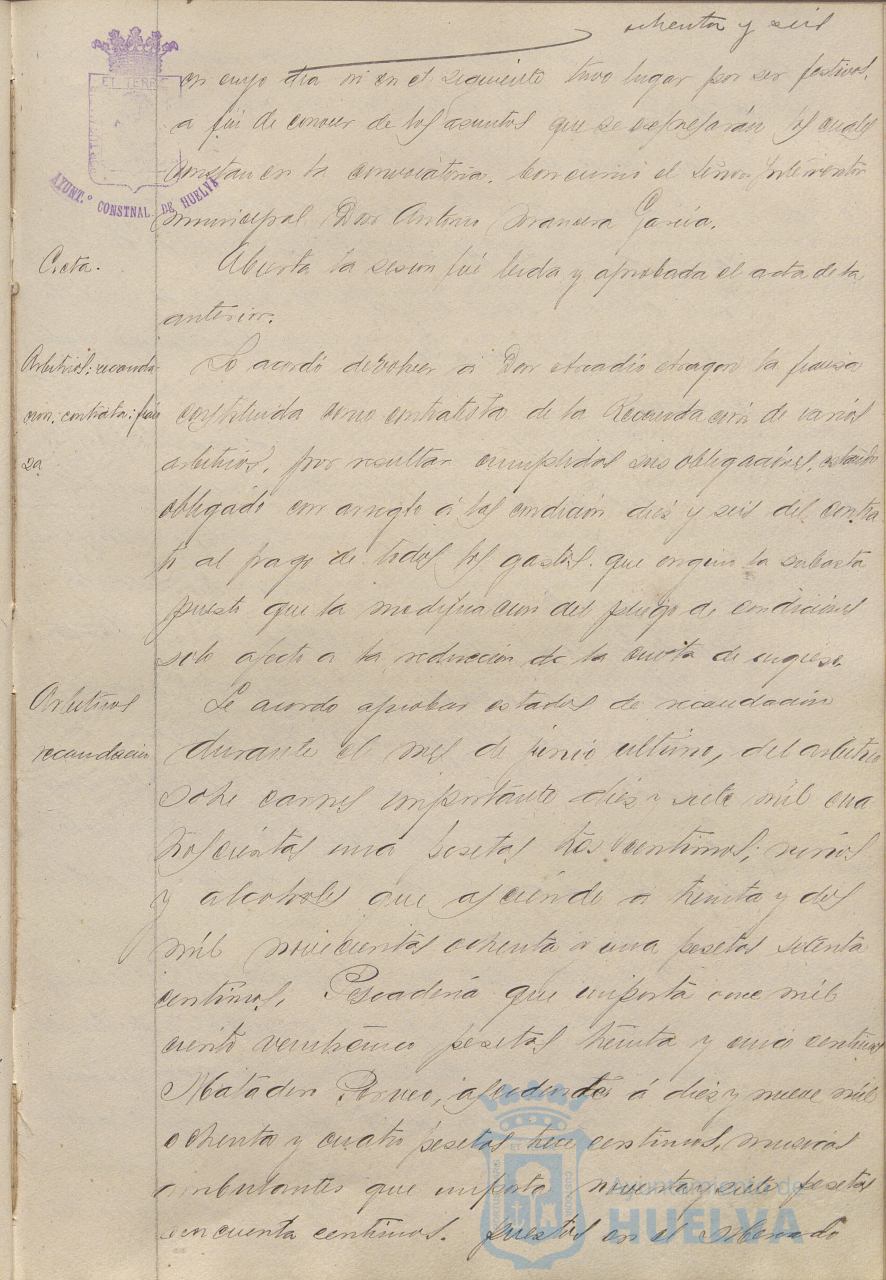 ochenta y seis
en cuyo dia ni en el siguiente tuvo lugar por ser festivos,
a fin de conocer de los asuntos que se expresarán los cuales
constan en la convocatoria. Concurrió el Señor Interventor
municipal Don Antonio Mancera García.
EL TERRE
AYUNT.º CONSTNAL DE HUELVA
Acta.
Abierta la sesion fué leida y aprobada el acta de la
anterior.
Arbitrios: recauda
cion: contrata: fian
za
Se acordó devolver á Don Arcadio Aragon la fianza
constituida como contratista de la Recaudación de varios
arbitrios, por resultar cumplidas sus obligaciones, estando
obligado con arreglo á las condición diez y seis del contra
to al pago de todos los gastos que origine la subasta
puesto que la modificacion del pliego de condiciones
solo afecto a la reducción de la cuota de ingreso.
Arbitrios
recaudacion
Se acordo aprobar estados de recaudación
durante el mes de junio ultimo, del arbitrio
sobre carnes importante diez y siete mil cua
trocientas una pesetas tres centimos; vinos
y alcoholes que asciende a treinta y dos
mil novecientas ochenta y una pesetas setenta
centimos, Pescaderia que importa once mil
ciento veinticinco pesetas treinta y cinco centimos
Matadero Porcuno, ascendentes á diez y nueve mil
ochenta y cuatro pesetas trece centimos, musicos
ambulantes que importa noventa y siete pesetas
cincuenta centimos. puestos en el Mercado
Ayuntamiento de
HUELVA